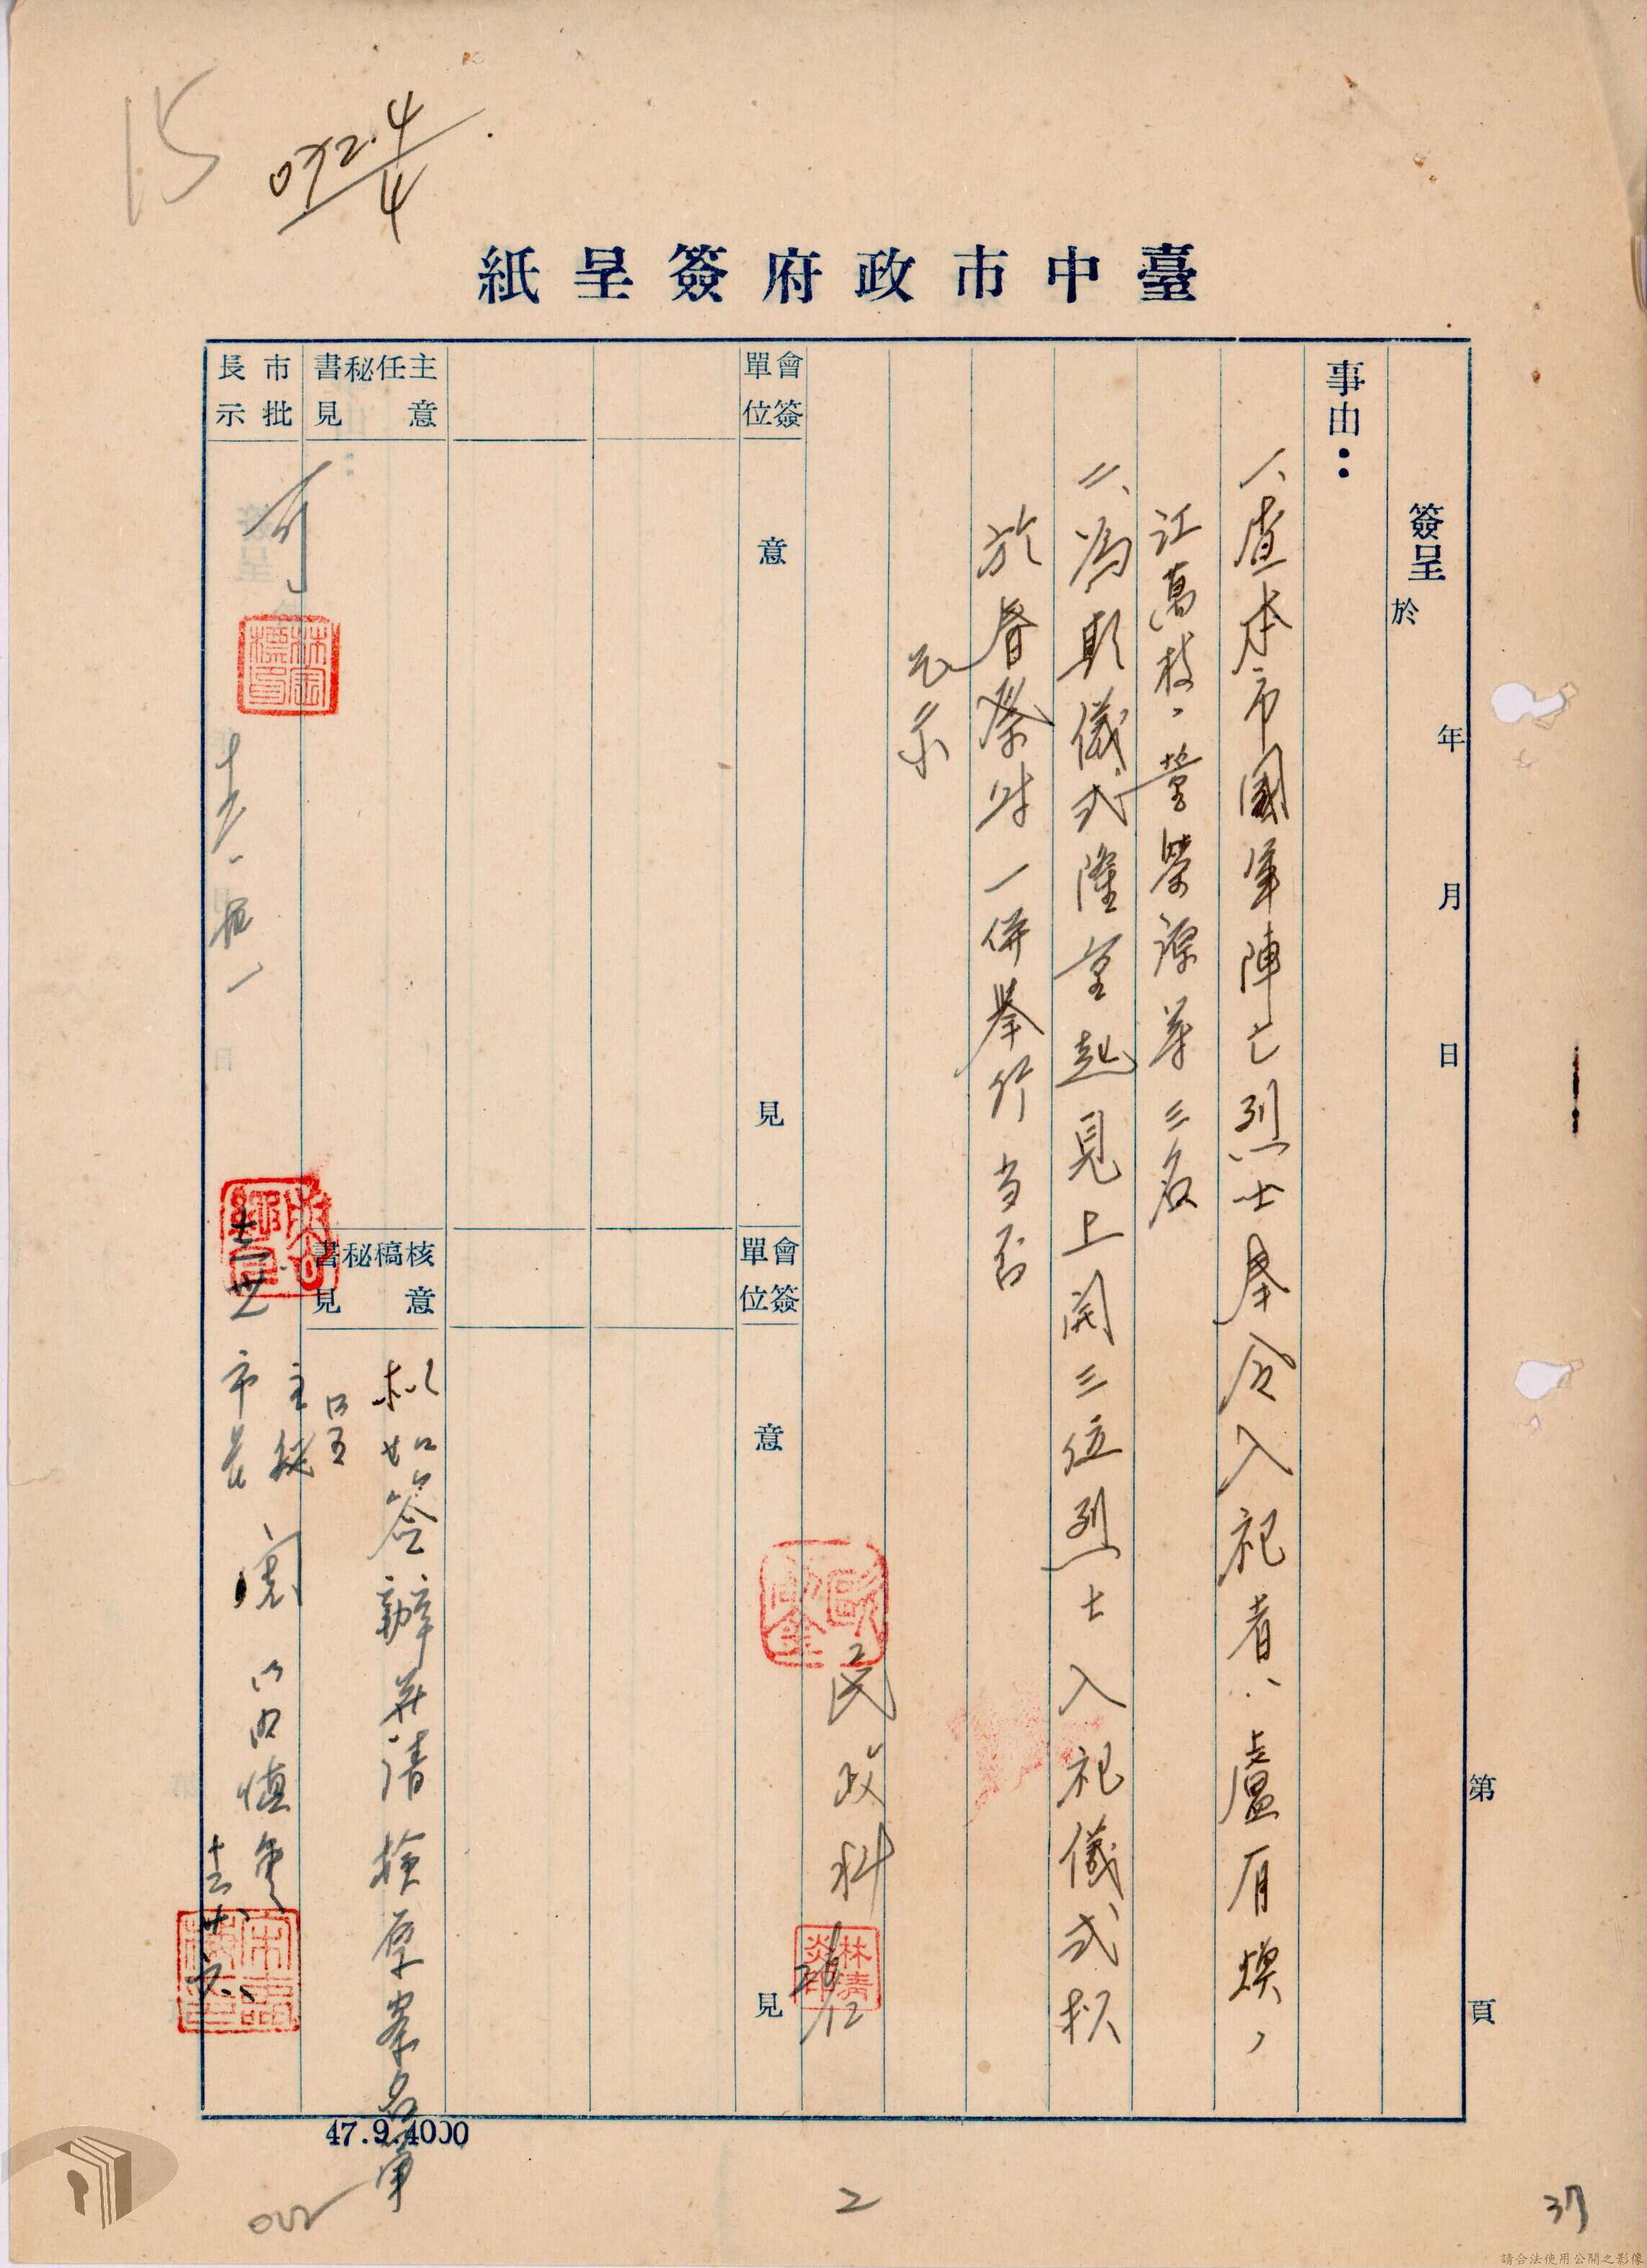 15
072.4/4
臺中市政府簽呈紙
簽呈 於 年 月 日
第 頁
事由：
一、查本市國軍陣亡烈士奉令入祀者：盧有煥、
江萬枝、營榮源等三名
二、為期儀式隆重起見上開三位烈士入祀儀式擬
於春祭時一併舉行當否
乞示
民政科
林清炎印
會簽單位
意見
會簽單位
意見
主任秘書意見
核稿秘書意見
擬如簽辦並請檢原案名單
呈
主秘
市長 閱
市長批示
可
47.9.4000
2
37
請合法使用公開之影像